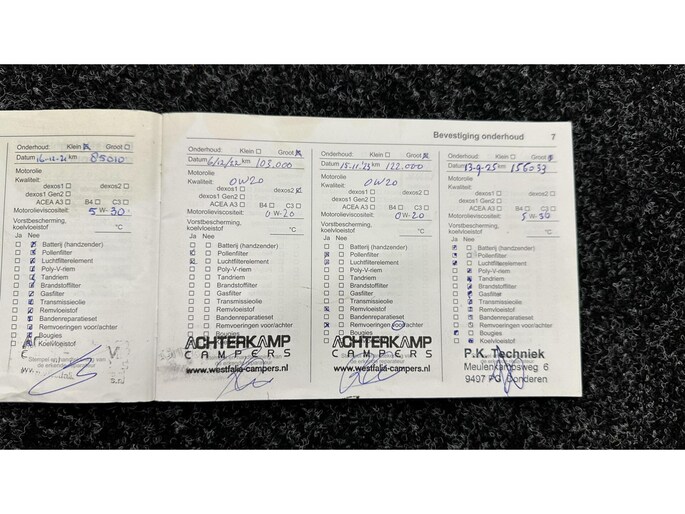 Bevestiging onderhoud 7
Onderhoud: Klein Groot
Datum 16-12-21 km 85010
Motorolie
Kwaliteit:
dexos1 dexos2
dexos1 Gen2
ACEA A3 B4 C3
Motorolieviscositeit: 5 W- 30
Vorstbescherming,
koelvloeistof °C
Ja Nee
Batterij (handzender)
Pollenfilter
Luchtfilterelement
Poly-V-riem
Tandriem
Brandstoffilter
Gasfilter
Transmissieolie
Remvloeistof
Bandenreparatieset
Remvoeringen voor/achter
Bougies
Koelvloeistof
Onderhoud: Klein Groot
Datum 6/12/22 km 103.000
Motorolie
Kwaliteit: 0W20
dexos1 dexos2
dexos1 Gen2
ACEA A3 B4 C3
Motorolieviscositeit: 0 W- 20
Vorstbescherming,
koelvloeistof °C
Ja Nee
Batterij (handzender)
Pollenfilter
Luchtfilterelement
Poly-V-riem
Tandriem
Brandstoffilter
Gasfilter
Transmissieolie
Remvloeistof
Bandenreparatieset
Remvoeringen voor/achter
Bougies
ACHTERKAMP
CAMPERS
www.westfalia-campers.nl
Onderhoud: Klein Groot
Datum 15.11.'23 km 122.000
Motorolie
Kwaliteit: 0W20
dexos1 dexos2
dexos1 Gen2
ACEA A3 B4 C3
Motorolieviscositeit: 0W-20
Vorstbescherming,
koelvloeistof °C
Ja Nee
Batterij (handzender)
Pollenfilter
Luchtfilterelement
Poly-V-riem
Tandriem
Brandstoffilter
Gasfilter
Transmissieolie
Remvloeistof
Bandenreparatieset
Remvoeringen voor/achter
ACHTERKAMP
CAMPERS
www.westfalia-campers.nl
Onderhoud: Klein Groot
Datum 13-9-25 km
Motorolie
Kwaliteit:
dexos1 dexos2
dexos1 Gen2
ACEA A3 B4 C3
Motorolieviscositeit: 5 W- 30
Vorstbescherming,
koelvloeistof °C
Ja Nee
Batterij (handzender)
Pollenfilter
Luchtfilterelement
Poly-V-riem
Tandriem
Brandstoffilter
Gasfilter
Transmissieolie
Remvloeistof
Bandenreparatieset
Remvoeringen voor/achter
Bougies
Koelvloeistof
P.K. Techniek
Meulenkampsweg 6
9497 Donderen